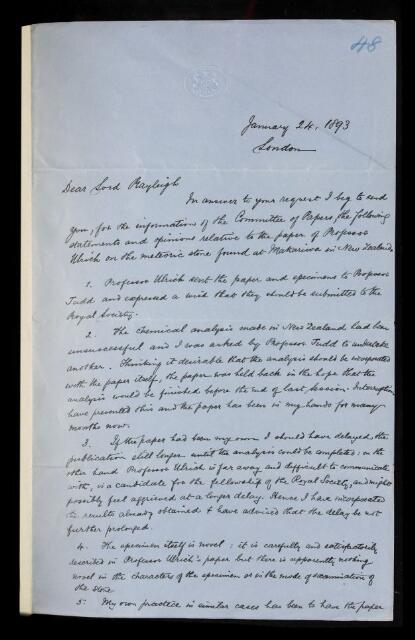 48
January 24, 1893
London
Dear Lord Rayleigh
In answer to your request I beg to send
you, for the information of the Committee of Papers, the following
statements and opinions relative to the paper of Professor
Ulrich on the meteoric stone found at Makariwa in New Zealand.
1. Professor Ulrich sent the paper and specimens to Professor
Judd and expressed a wish that they should be submitted to the
Royal Society.
2. The chemical analysis made in New Zealand had been
unsuccessful and I was asked by Professor Judd to undertake
another. Thinking it desirable that the analysis should be incorporated
with the paper itself, the paper was held back in the hope that the
analysis would be finished before the end of last session. Interruptions
have prevented this and the paper has been in my hands for many
months now.
3. If the paper had been my own I should have delayed the
publication still longer until the analysis could be completed: on the
other hand Professor Ulrich is far away and difficult to communicate
with, is a candidate for the fellowship of the Royal Society, and might
possibly feel aggrieved at a longer delay. Hence I have incorporated
the results already obtained & have advised that the delay be not
further prolonged.
4. The specimen itself is novel: it is carefully and satisfactorily
described in Professor Ulrich's paper but there is apparently nothing
novel in the characters of the specimen or in the mode of examination of
the stone
5. My own practice in similar cases has been to have the paper